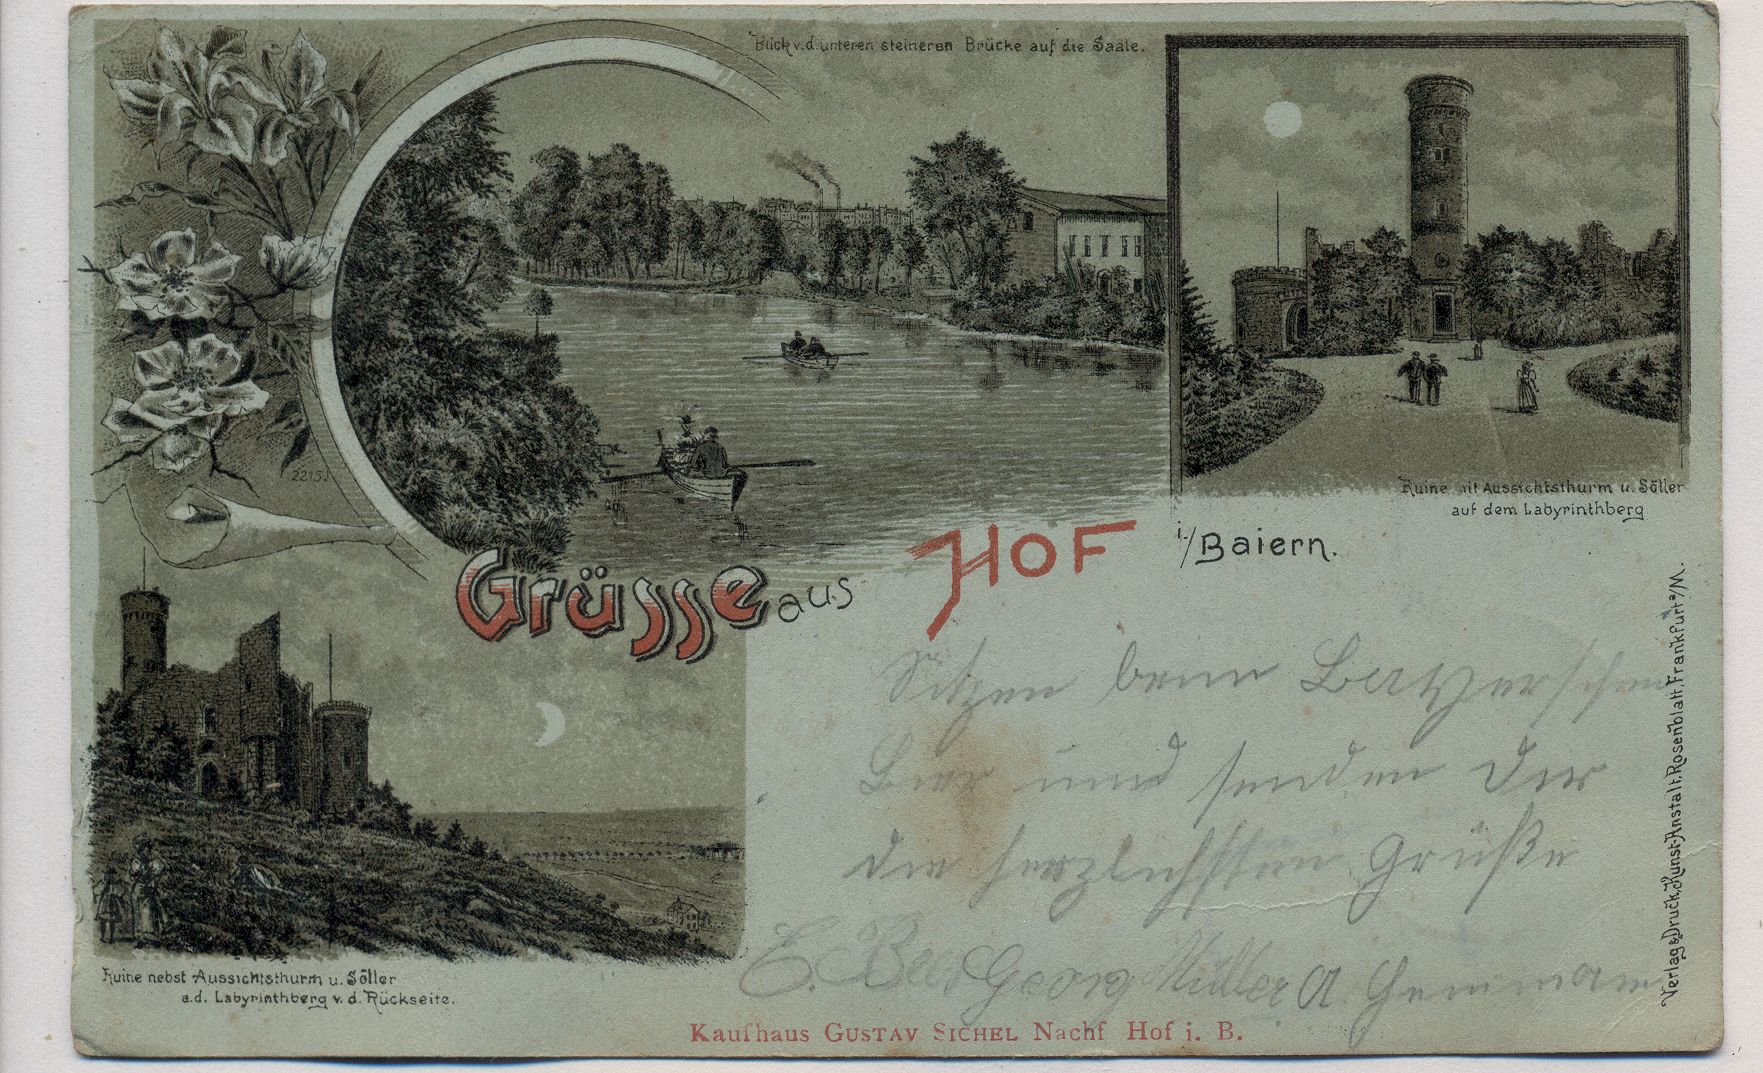 Blick v. d. unteren steinernen Brücke auf die Saale.
Ruine mit Aussichtsthurm u. Söller
auf dem Labyrinthberg
2215.
Grüsse aus Hof i./Baiern.
Sitzen beim
Bier und senden Dir
die herzlichsten Grüße
E. Georg Müller A.
Ruine nebst Aussichtsthurm u. Söller
a.d. Labyrinthberg v. d. Rückseite.
Kaufhaus Gustav Sichel Nachf Hof i. B.
Verlag & Druck, Kunst-Anstalt, Rosenblatt, Frankfurt a/M.